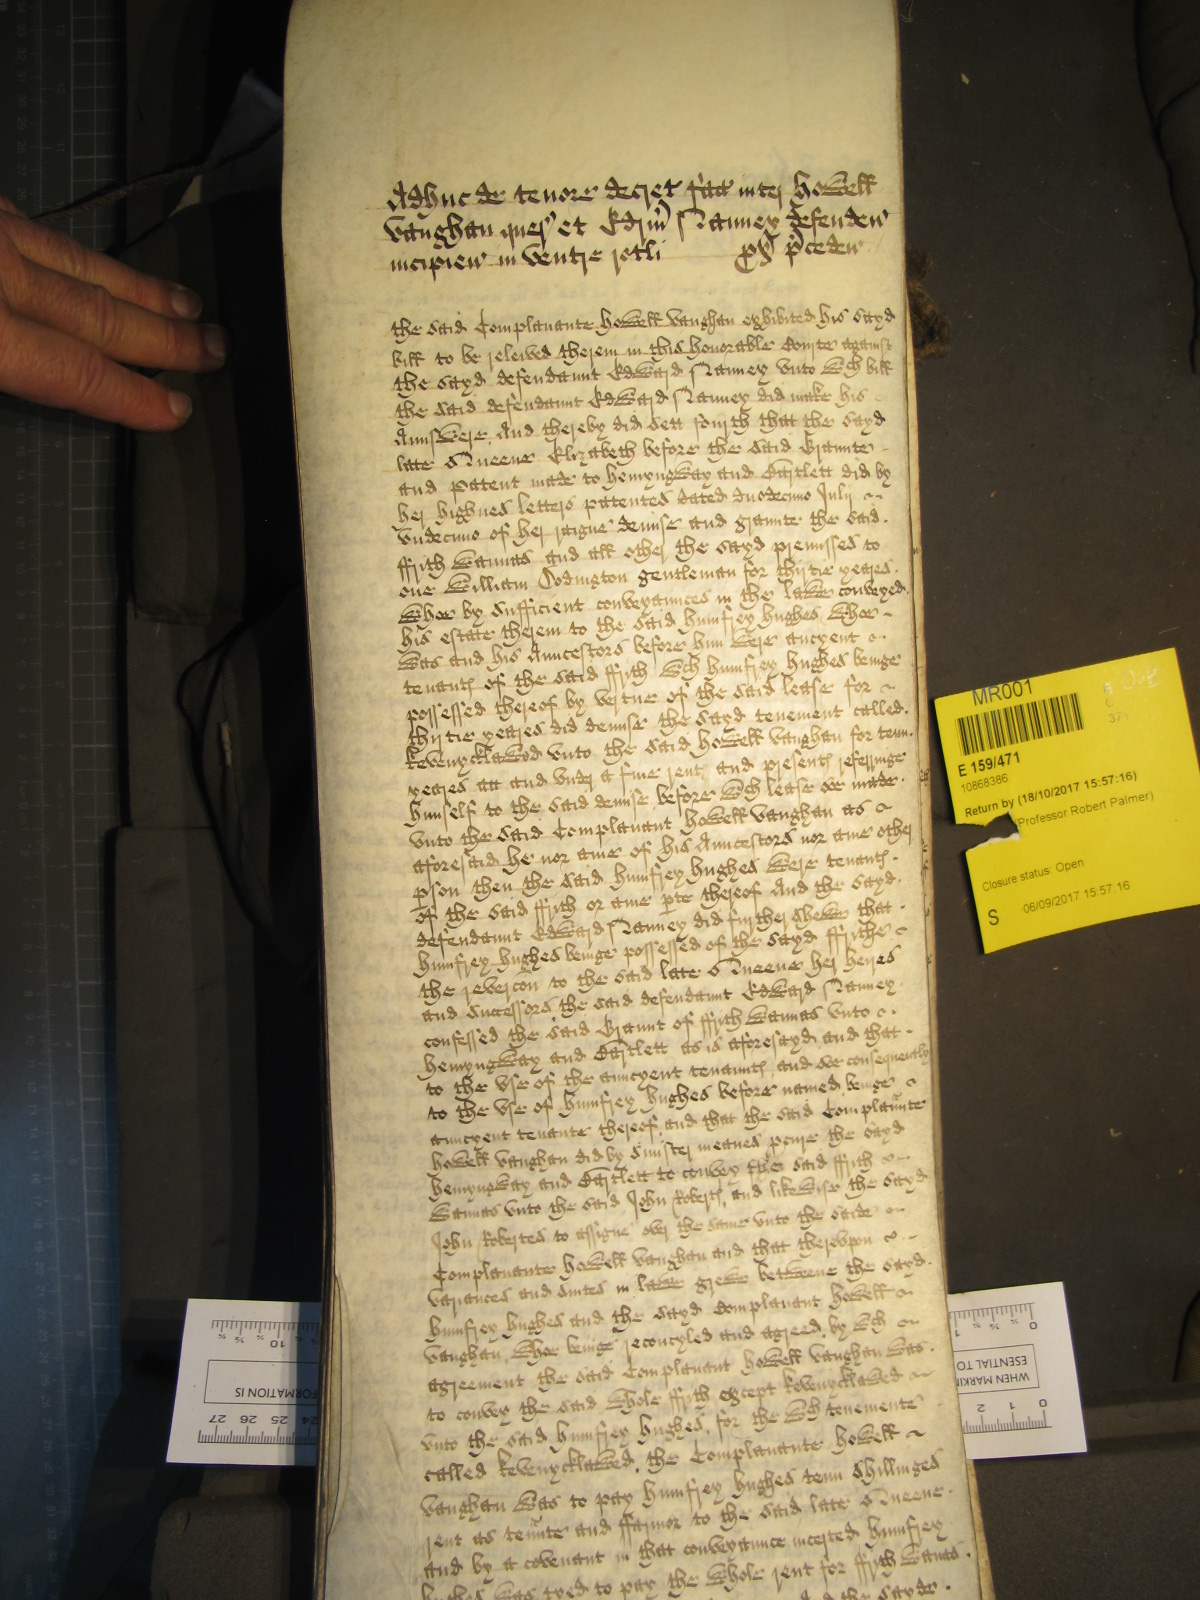 Adhuc de tenore decret fact inter Howell
Vaughan quer et Edrm Nanney defenden
incipien in ventre rotli px preceden
the said Complainante Howell Vaughan exhibited his sayd
bill to be releived therein in this honorable Courte against
the sayd defendannt Edward Nanney vnto wch bill
the said defendannt Edward Nanney did make his
Aunswere, And thereby did sett fourth that the sayd
late Queene Elizabeth before the said Graunte
and patent made to hemyngway and Bartlett did by
her highnes letters patentes dated duodecimo Julij
vndecimo of her raigne demise and graunte the said
ffrith wannas and all other the sayd premisses to
one William Dodington gentleman for thirtie yeares
whoe by sufficient conveyaunces in the lawe conveyed
his estate therein to the said humfrey hughes whoe
was and his Auncestors before him were auncyent
tenants of the said ffrith wch humfrey hughes beinge
possessed thereof by vertue of the said lease for
thirtie yeares did demise the sayd tenement called
kevenycklawed vnto the said Howell Vaughan for tenn
yeares att and vnder a fine rent and presents reserringe
himself to the said demise, before wch lease soe made
vnto the said Complainant Howell Vaughan as
aforesaid he nor anie of his Auncestors nor anie other
pson then the said humfrey hughes were tenants
of the said ffrith or anie pte thereof And the sayd
defendannt Edward Nanney did further shewe that
humfrey hughes beinge possessed of the sayd ffrithe
the revercon to the said late Queene her heires
and successors the said defendannt Edward Nanney
confessed the said Graunt of ffrith wannas vnto
hemyngway and Bartlett as is aforesayd, and that
to the vse of the auncyent tenaunts, and soe consequently
to the vse of humfrey hughes before named, beinge
auncyent tenante thereof, and that the said Complainante
Howell Vaughan did by sinister meanes pcure the sayd
hemyngway and Bartlett to convey the said ffrith
wannas vnto the said John Roberts, and likewise the sayd
John Robertes to assigne over the same vnto the saide
Complainante Howell Vaughan and that therevpon
variances and suites in lawe grewe betweene the sayd
humfrey hughes and the sayd Complainant Howell
Vaughan, whoe beinge reconcyled and agreed, by wch
agreement the said Complainant Howell Vaughan was
to convey the said whole ffrith except kevenycklawed
vnto the said humfrey hughes, for the wch tenemente
called kevenycklawed, the Complainante Howell
Vaughan was to pay humfrey hughes tenn shillinges
rent as tennte and ffarmor to the said late Queene
and by a covenant in that conveyaunce incerted humfrey
hughes was tyed to pay the whole rent for ffrith wanas
And the sayde
MR001
E 159/471
10868386
Return by (18/10/2017 15:57:16)
(Professor Robert Palmer)
Closure status: Open
S 06/09/2017 15:57:16
10
FORMATION IS
27 26 25 24
0
WHEN MARKIN
ESENTIAL TO
2 1 0